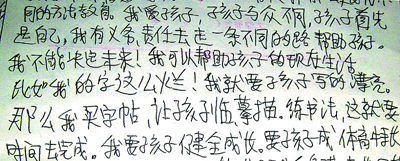 同的方法教育。我爱孩子,孩子与众不同,孩子首先
是自己,我有义务、责任去走一条不同的路帮助孩子。
我不能快进未来!我可以帮助孩子的现在生活
比如我的字这么烂!我就要孩子写的漂亮。
那么我买字帖,让孩子临摹描。练书法,这就要
时间去完成。我要孩子健全成长。要孩子成 体高特长